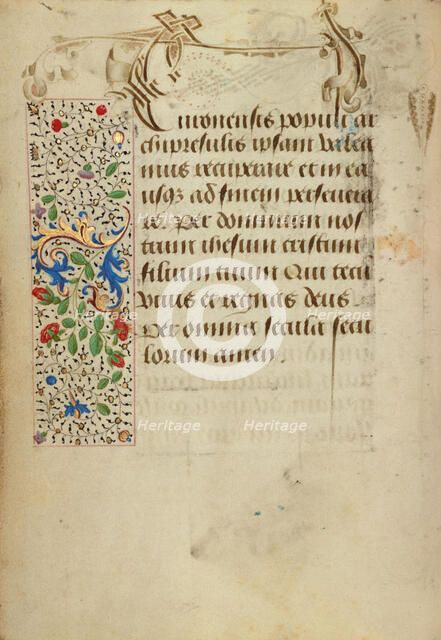 Turonensis populi ar
chipresulis ipsam valea
mus recuperare et in ea
usq3 ad finem persevera
re. Per dominum nos
trum ihesum cristum
filium tuum Qui tecu
vivis et regnas deus
Per omnia secula secu
lorum amen
Heritage
Heritage
Heritage
Heritage
Heritage
Heritage